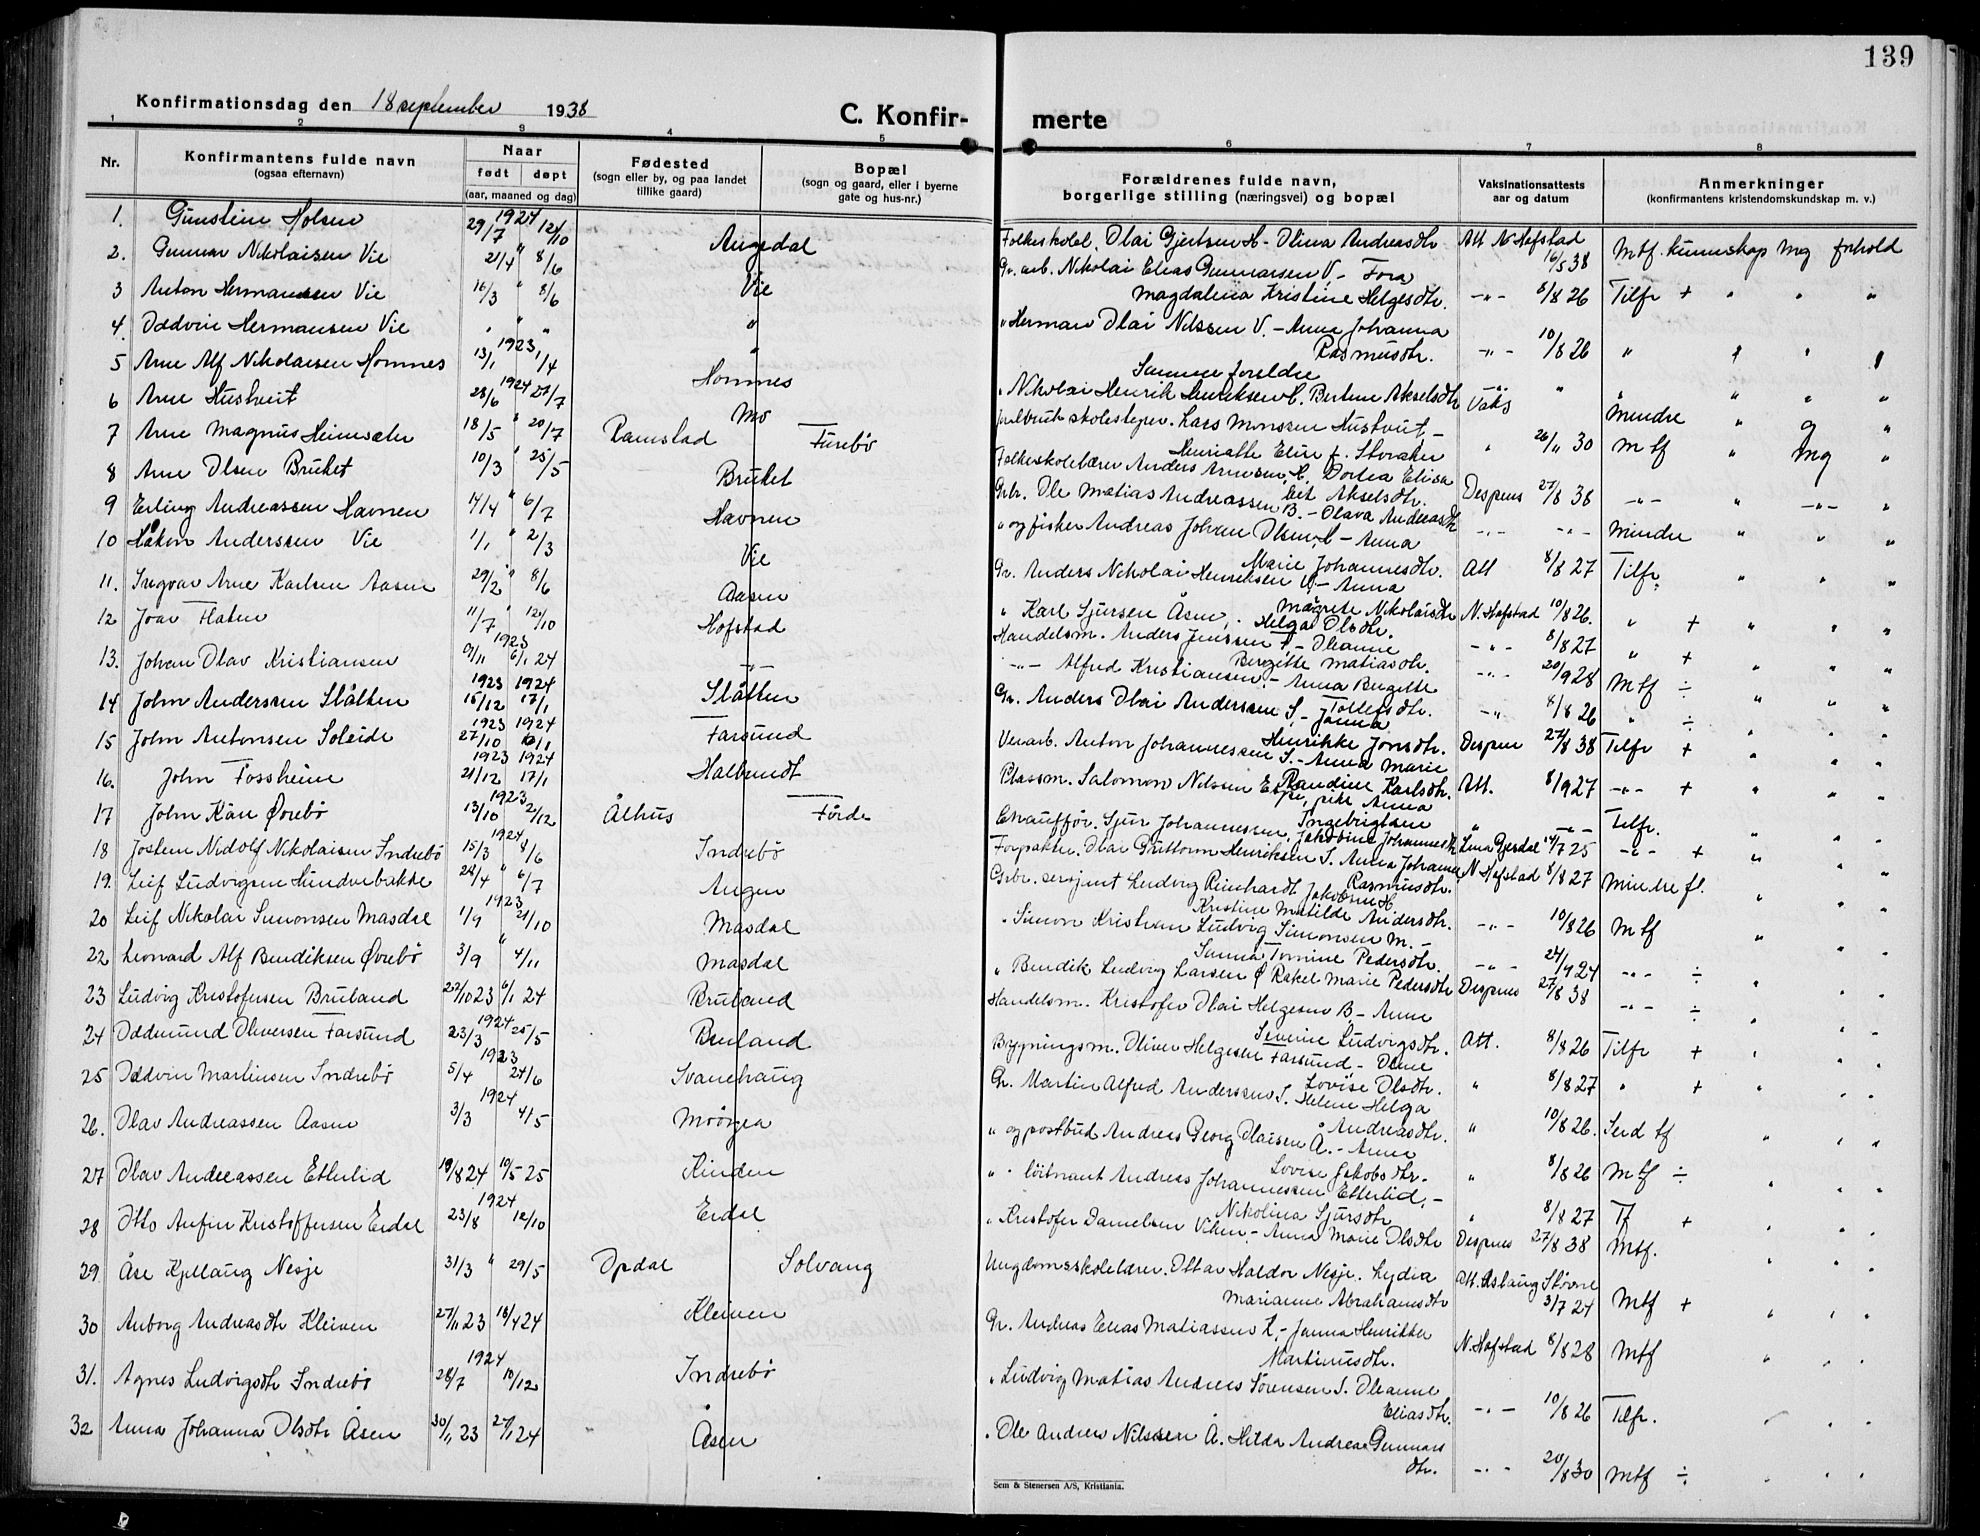 139
Konfirmationsdag den 18 september 1938
C. Konfirmerte
1 2 3 4 5 6 7 8
Nr.
Konfirmantens fulde navn
(ogsaa efternavn)
Naar
født døpt
(aar, maaned og dag)
Fødested
(sogn eller by, og paa landet
tillike gaard)
Bopæl
(sogn og gaard, eller i byerne
gate og hus-nr.)
Forældrenes fulde navn,
borgerlige stilling (næringsvei) og bopæl
Vaksinationsattests
aar og datum
Anmerkninger
(konfirmantens kristendomskundskap m. v.)
1. Gunstein Holsen 29/7 1924 12/10 Angedal
2. Gunnar Nikolaisen Vie 21/4 " 8/6 Vie
3 Anton Hermansen Vie 16/3 " 8/6 "
4. Oddvin Hermansen Vie " " " "
5 Arne Alf Nikolaisen Hornnes 13/1 1923 1/4 Hornnes
6 Arne Hustveit 28/6 1924 27/7 Mo
7 Arne Magnus Heimsæter 18/5 " 20/7 Ramstad Furebø
8 Arne Olsen Bruket 10/3 " 25/5 Bruket
9 Erling Andreassen Havnen 14/4 " 6/7 Havnen
10 Håkon Anderssen Vie 1/1 " 2/3 Vie
11. Ingvar Arne Karlsen Aasen 29/2 " 8/6 Aasen
12 Joar Flaten 11/7 " 12/10 Hofstad
13. Johan Olav Kristiansen 9/11 1923 6/1 24 -"-
14 John Anderssen Slåtten 15/12 1923 17/1 1924 Slåtten
15 John Antonsen Soleide 27/10 1923 1924 Farsund
16. John Fossheim 21/12 1923 17/1 1924 Halbrendt
17 John Kåre Øvrebø 13/10 1923 2/12 Ålhus Førde
18 Jostein Nidolf Nikolaisen Indrebø 15/3 1924 8/6 Indrebø
19. Leif Ludvigsen Hundvebakke 28/4 " 6/7 Angen
20 Leif Nikolai Simonsen Masdal 1/9 1923 21/10 Masdal
22 Leonard Alf Bendiksen Øvrebø 3/9 " 4/11 Masdal
23 Ludvig Kristofersen Bruland 23 6/1 24 Bruland
24 Oddmund Oliversen Farsund 23/3 1924 25/5 Bruland
25 Oddvin Martinsen Indrebø 5/4 1923 24/6 Svanehaug
26. Olav Andreassen Aasen 3/3 1924 4/5
27 Olav Andreassen Etterlid 19/8 24 10/5 25 Kinden
28 Otto Anfin Kristoffersen Eidal 23/8 1924 12/10 Eidal
29. Åse Kjellaug Nesje 31/3 " 29/5 Opdal Solvang
30 Anborg Andreasdtr Kleiven 27/11 23 18/4 24 Kleiven
31. Agnes Ludvigsdtr Indrebø 28/7 1924 10/12 Indrebø
32 Anna Johanna Olsdtr Åsen 30/11 23 27/1 24 Åsen
Folkeskolel. Olai Gjertsen H - Olina Andreasdtr Att N Hofstad 16/5 38 Mtf. kunnskap Mg forhold
Gr. arb. Nikolai Elias Gunnarsen V. - Fora
Magdalena Kristine Helgesdtr. -"- 8/8 26 Tilfr + " " "
" Herman Olai Nilssen V. - Anna Johanna
Rasmusdtr. -"- 10/8 26 " " "
Samme foreldre
" Nikolai Henrik Henriksen H. Bertine Akselsdtr Vaks Mindre " g "
skolestyrer. Lars Monssen Hustveit, -
Henriette Elise f. Storaker " 26/11 30 Mtf " Mg "
Folkeskolelærer Anders Arnesen H. Dortea Elisa-
bet Akselsdtr. Despens 27/8 38 -"- " -"- "
Grbr. Ole Matias Andreassen B. - Olava Andreasdtr -"- -"- Mindre " " "
" og fisker Andreas Johan Olsen H - Anna
Marie Johannesdtr. Att 8/8 27 Tilfr. " " "
Gr. Anders Nikolai Henriksen V - Anna
Magrete Nikolaisdtr N. Hofstad 10/8 26. " + " " "
" Karl Sjursen Åsen, Helga Olsdtr. -"- 8/8 27 " + " " "
Handelsm. Anders Jenssen F - Oleanne
Bergitte Matiasdtr. -"- 20/9 28 Mtf ÷ " " "
-"- Alfred Kristiansen. - Anna Bergitte
Tollefsdtr. -"- 8/8 26 " ÷ " " "
Gr. Anders Olai Anderssen S. - Janna
Henrikke Jonsdtr. Despens 27/8 38 Tilfr + " " "
Verarb. Anton Johannessen S. - Anna Marie
Randine Karlsdtr. Att. 8/9 27 -"- + " " "
Plassm. Salomon Nilssen Espe, pike Anna
Ingebrigtsen " -"- Tilfr. " " "
Chauffør. Sjur Johannessen, Jakobine Johannesdtr Lina Gjerdal 14/7 25 -"- + " " "
Forpakter. Olai Guttorm Henriksen I. Anna Johanne
Rasmusdtr. N Hofstad 8/8 27 Mindre fl. " " "
Grbr. sersjant Ludvig Reinhardt Jakobsen H.
Kristine Matilde Andersdtr. -"- 10/8 26 Mtf " " "
" Simon Kristian Ludvig Simonsen M. -
Sanna Tomine Pedersdtr. -"- 24/4 24 -"- ÷ " " "
" Bendik Ludvig Larsen Ø Rakel Marie Pedersdtr Despens 27/8 38 -"- ÷ " " "
Handelsm. Kristofer Olai Helgesen B - Anne
Severine Ludvigsdtr. Att. 8/8 26 Tilfr + " " "
Bygningsm. Oliver Helgesen Farsund - Oline
Lovise Olsdtr. " 8/8 27 " + " " "
Gr. Martin Alfred Anderssen I. Helene Helga
Andreasdtr. " 10/8 26. Serd tf " " "
" og postbud Andreas Georg Olaisen Å. - Anne
Lovise Jakobsdtr. " 8/8 26 Mtf ÷ " " "
" " løitnant Andreas Johannessen Etterlid, -
Nikolina Sjursdtr " 8/8 27 Tf + " " "
" Kristofer Danielsen Viken - Anna Marie Olsdtr Despens 27/8 38 Mtf. " " "
Ungdomsskolelærer. Ottar Haldor Nesje. Lydia
Marianne Abrahamsdtr Att. Aslaug Støvne 3/7 24 Mtf + " " "
Gr. Andreas Elias Matiassen K. - Janna Henrikke
Martinusdtr. N. Hofstad 8/8 28 Mtf " " "
" Ludvig Matias Andreas Sørensen I. Oleanne
Eliasdtr. -"- 10/8 26 Tilfr. " " "
" Ole Andreas Nilssen Å. Hilda Andrea Gunnars
dtr. -"- 20/8 30 Mtf ÷ " " "
Sem & Stenersen A/S, Kristiania.